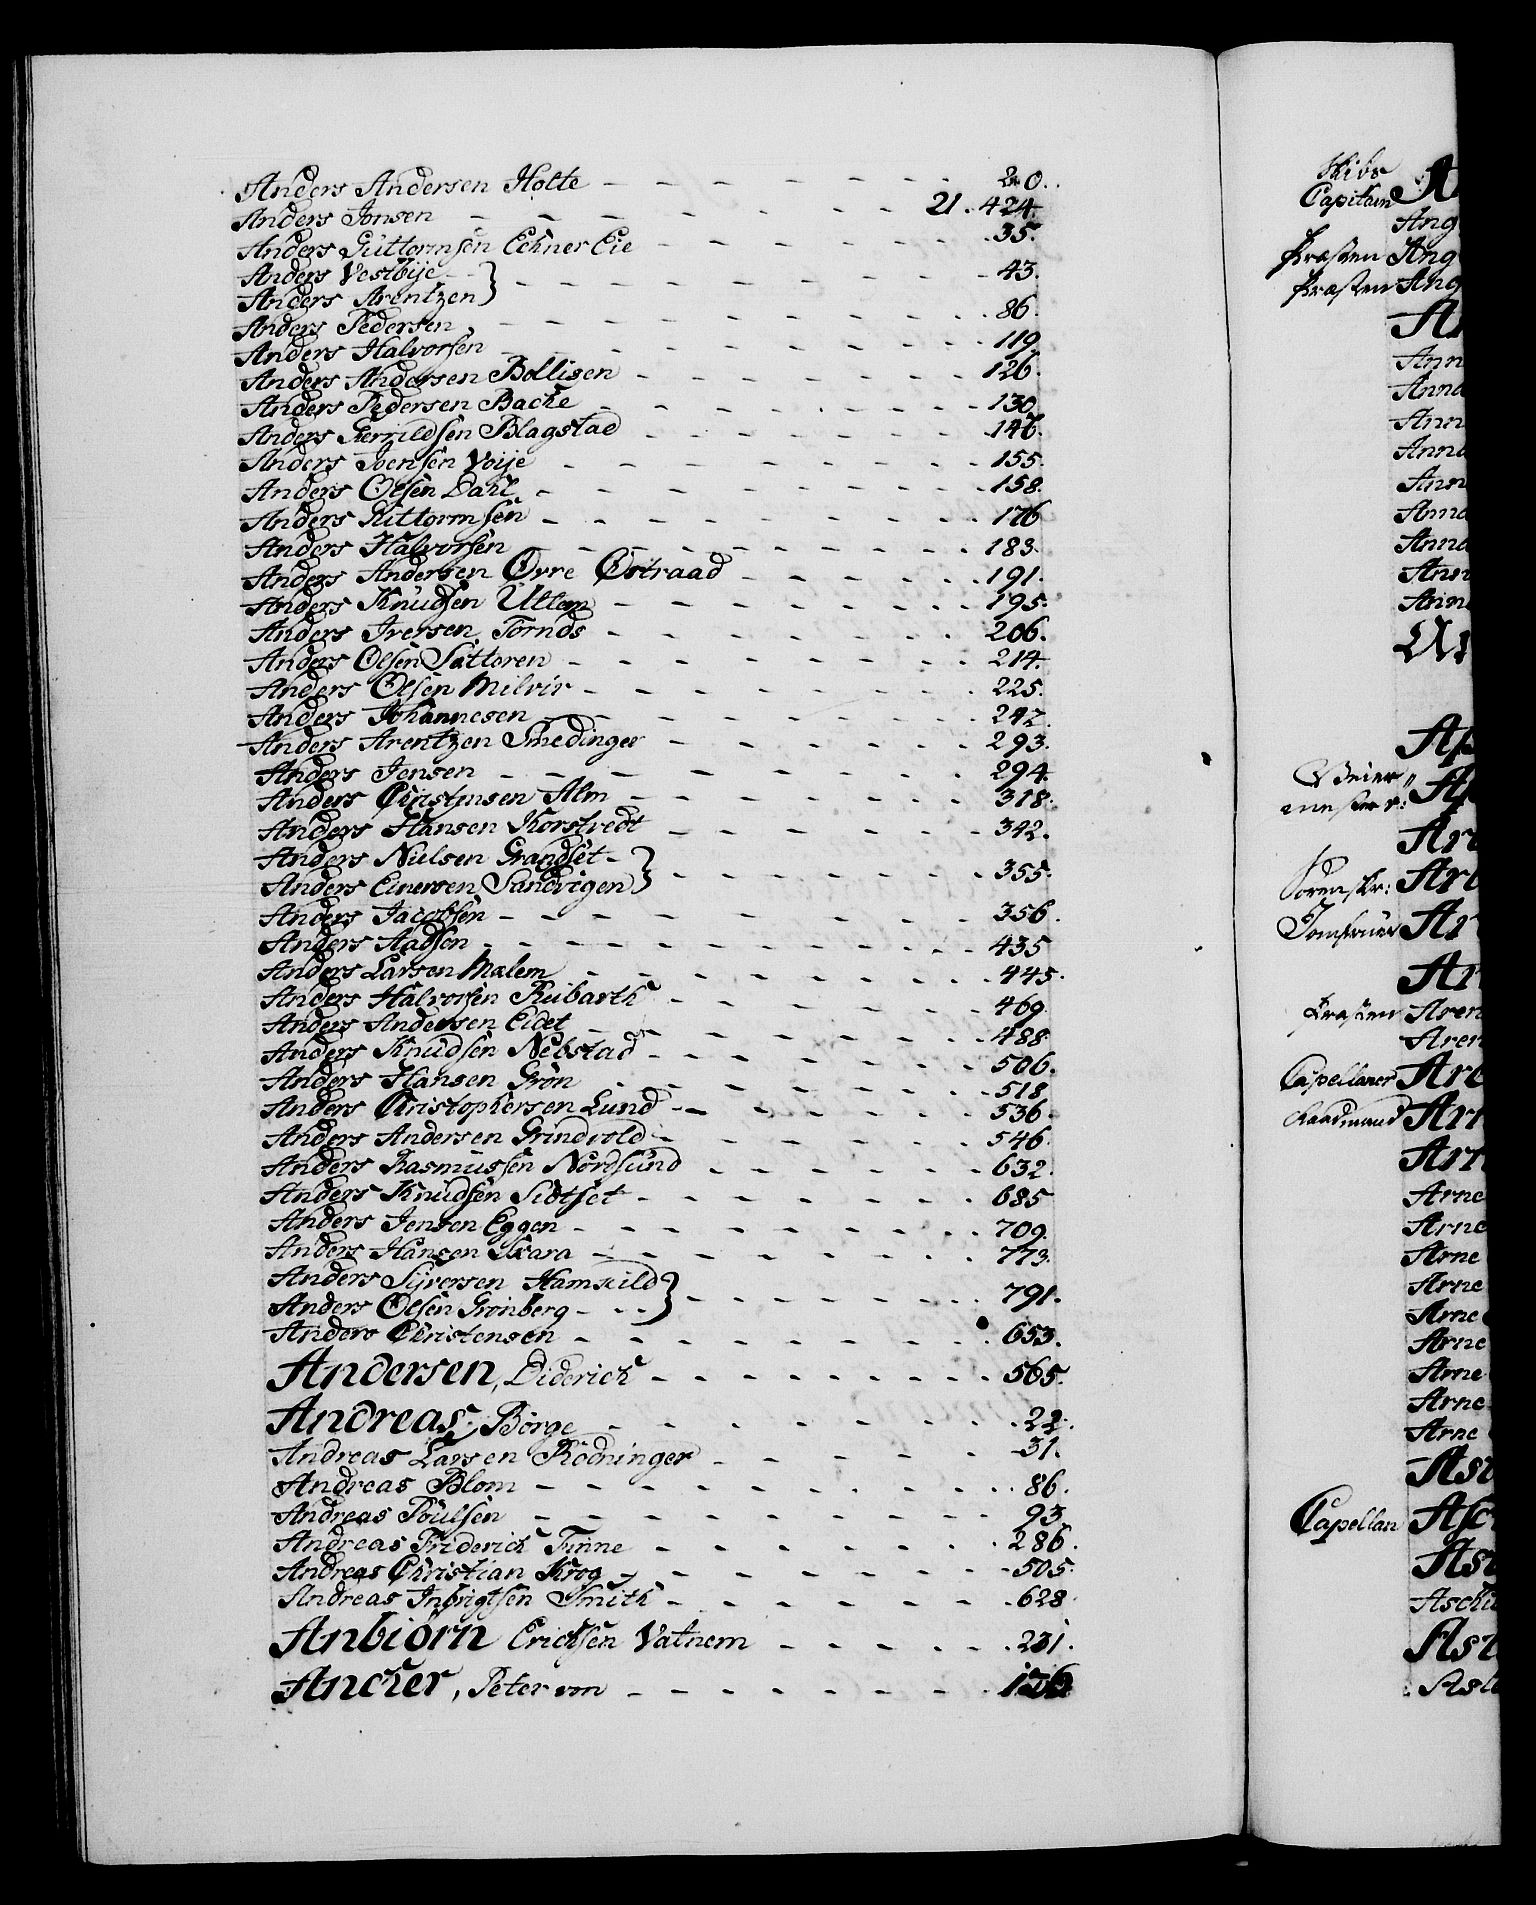 Anders Andersen Holte - - - - - - - 20.
Anders Jonsen - - - - - - - 21. 424.
Anders Guttormsen Echner Eie - - - - - - 35.
Anders Vestbije - -
Anders Arentzen } - - - - - - - 43.
Anders Pedersen - - - - - - - 86.
Anders Halvorsen - - - - - - - 119
Anders Andersen Bolligen - - - - - - 126.
Anders Pedersen Backe - - - - - - 130
Anders Gerrildsen Blagstad - - - - - - 146.
Anders Joensen Voije - - - - - - - 155.
Anders Olsen Dahl - - - - - - - 158.
Anders Guttormsen - - - - - - - 176
Anders Halvorsen - - - - - - - 183.
Anders Andersen Øvre Østraad - - - - - 191.
Anders Knudsen Ullern - - - - - - 195.
Anders Iversen Tornds - - - - - - 206.
Anders Olsen Sattoren - - - - - - 214.
Anders Olsen Milvir - - - - - - 225.
Anders Johannesen - - - - - - 242.
Anders Arentzen Smedinger - - - - - 293.
Anders Jensen - - - - - - - 294.
Anders Christensen Alm - - - - - - 318.
Anders Hansen Korstvedt - - - - - 342.
Anders Nielsen Grandset -
Anders Einersen Sandvigen } - - - - - - 355.
Anders Jacobsen - - - - - - - 356.
Anders Aadsen - - - - - - - 435
Anders Larsen Malem - - - - - - 445.
Anders Halvorsen Rubarth - - - - - 469.
Anders Andersen Eidet - - - - - - 488
Anders Knudsen Nebstad - - - - - - 506.
Anders Hansen Grøn - - - - - - 518
Anders Christophersen Lund - - - - - 536.
Anders Andersen Grindvold - - - - - 546.
Anders Rasmussen Nordsund - - - - - 632.
Anders Knudsen Sidtset - - - - - - 685
Anders Jensen Eggen - - - - - - 709.
Anders Hansen Skara - - - - - - 773.
Anders Sijversen Hamskild
Anders Olsen Grønberg - - - } - - - - - - 791.
Anders Christensen - - - - - - 653.
Andersen, Diderich - - - - - - - 565.
Andreas, Børge - - - - - - - 22.
Andreas Larsen Rødninger - - - - - 31.
Andreas Blom - - - - - - - 86.
Andreas Poulsen - - - - - - - 93
Andreas Friderich Tinne - - - - - - 286.
Andreas Christian Krog - - - - - - 505.
Andreas Inbrigtsen Smith - - - - - - 628
Anbiørn Erichsen Vatnem - - - - - 231.
Ancher, Peter von - - - - - - - 136
Skibs
Capitain A
Ang
Præsten Ang
Præsten Ang
An
Ann
Anna
Ann
Anna
Ann
Anna
Anna
Ann
Ann
Ap
Veier
mester: Ap
Are
Sorenskr: Are
Jomfruer Ar
Ar
Præsten Aren
Aren
Capellaner Are
Raadmand Arn
Arn
Arne
Arne
Arne
Arne
Arne
Arne
Arne
Arne
Arne
As
Capellan Asc
As
Asch
Asl
Asla